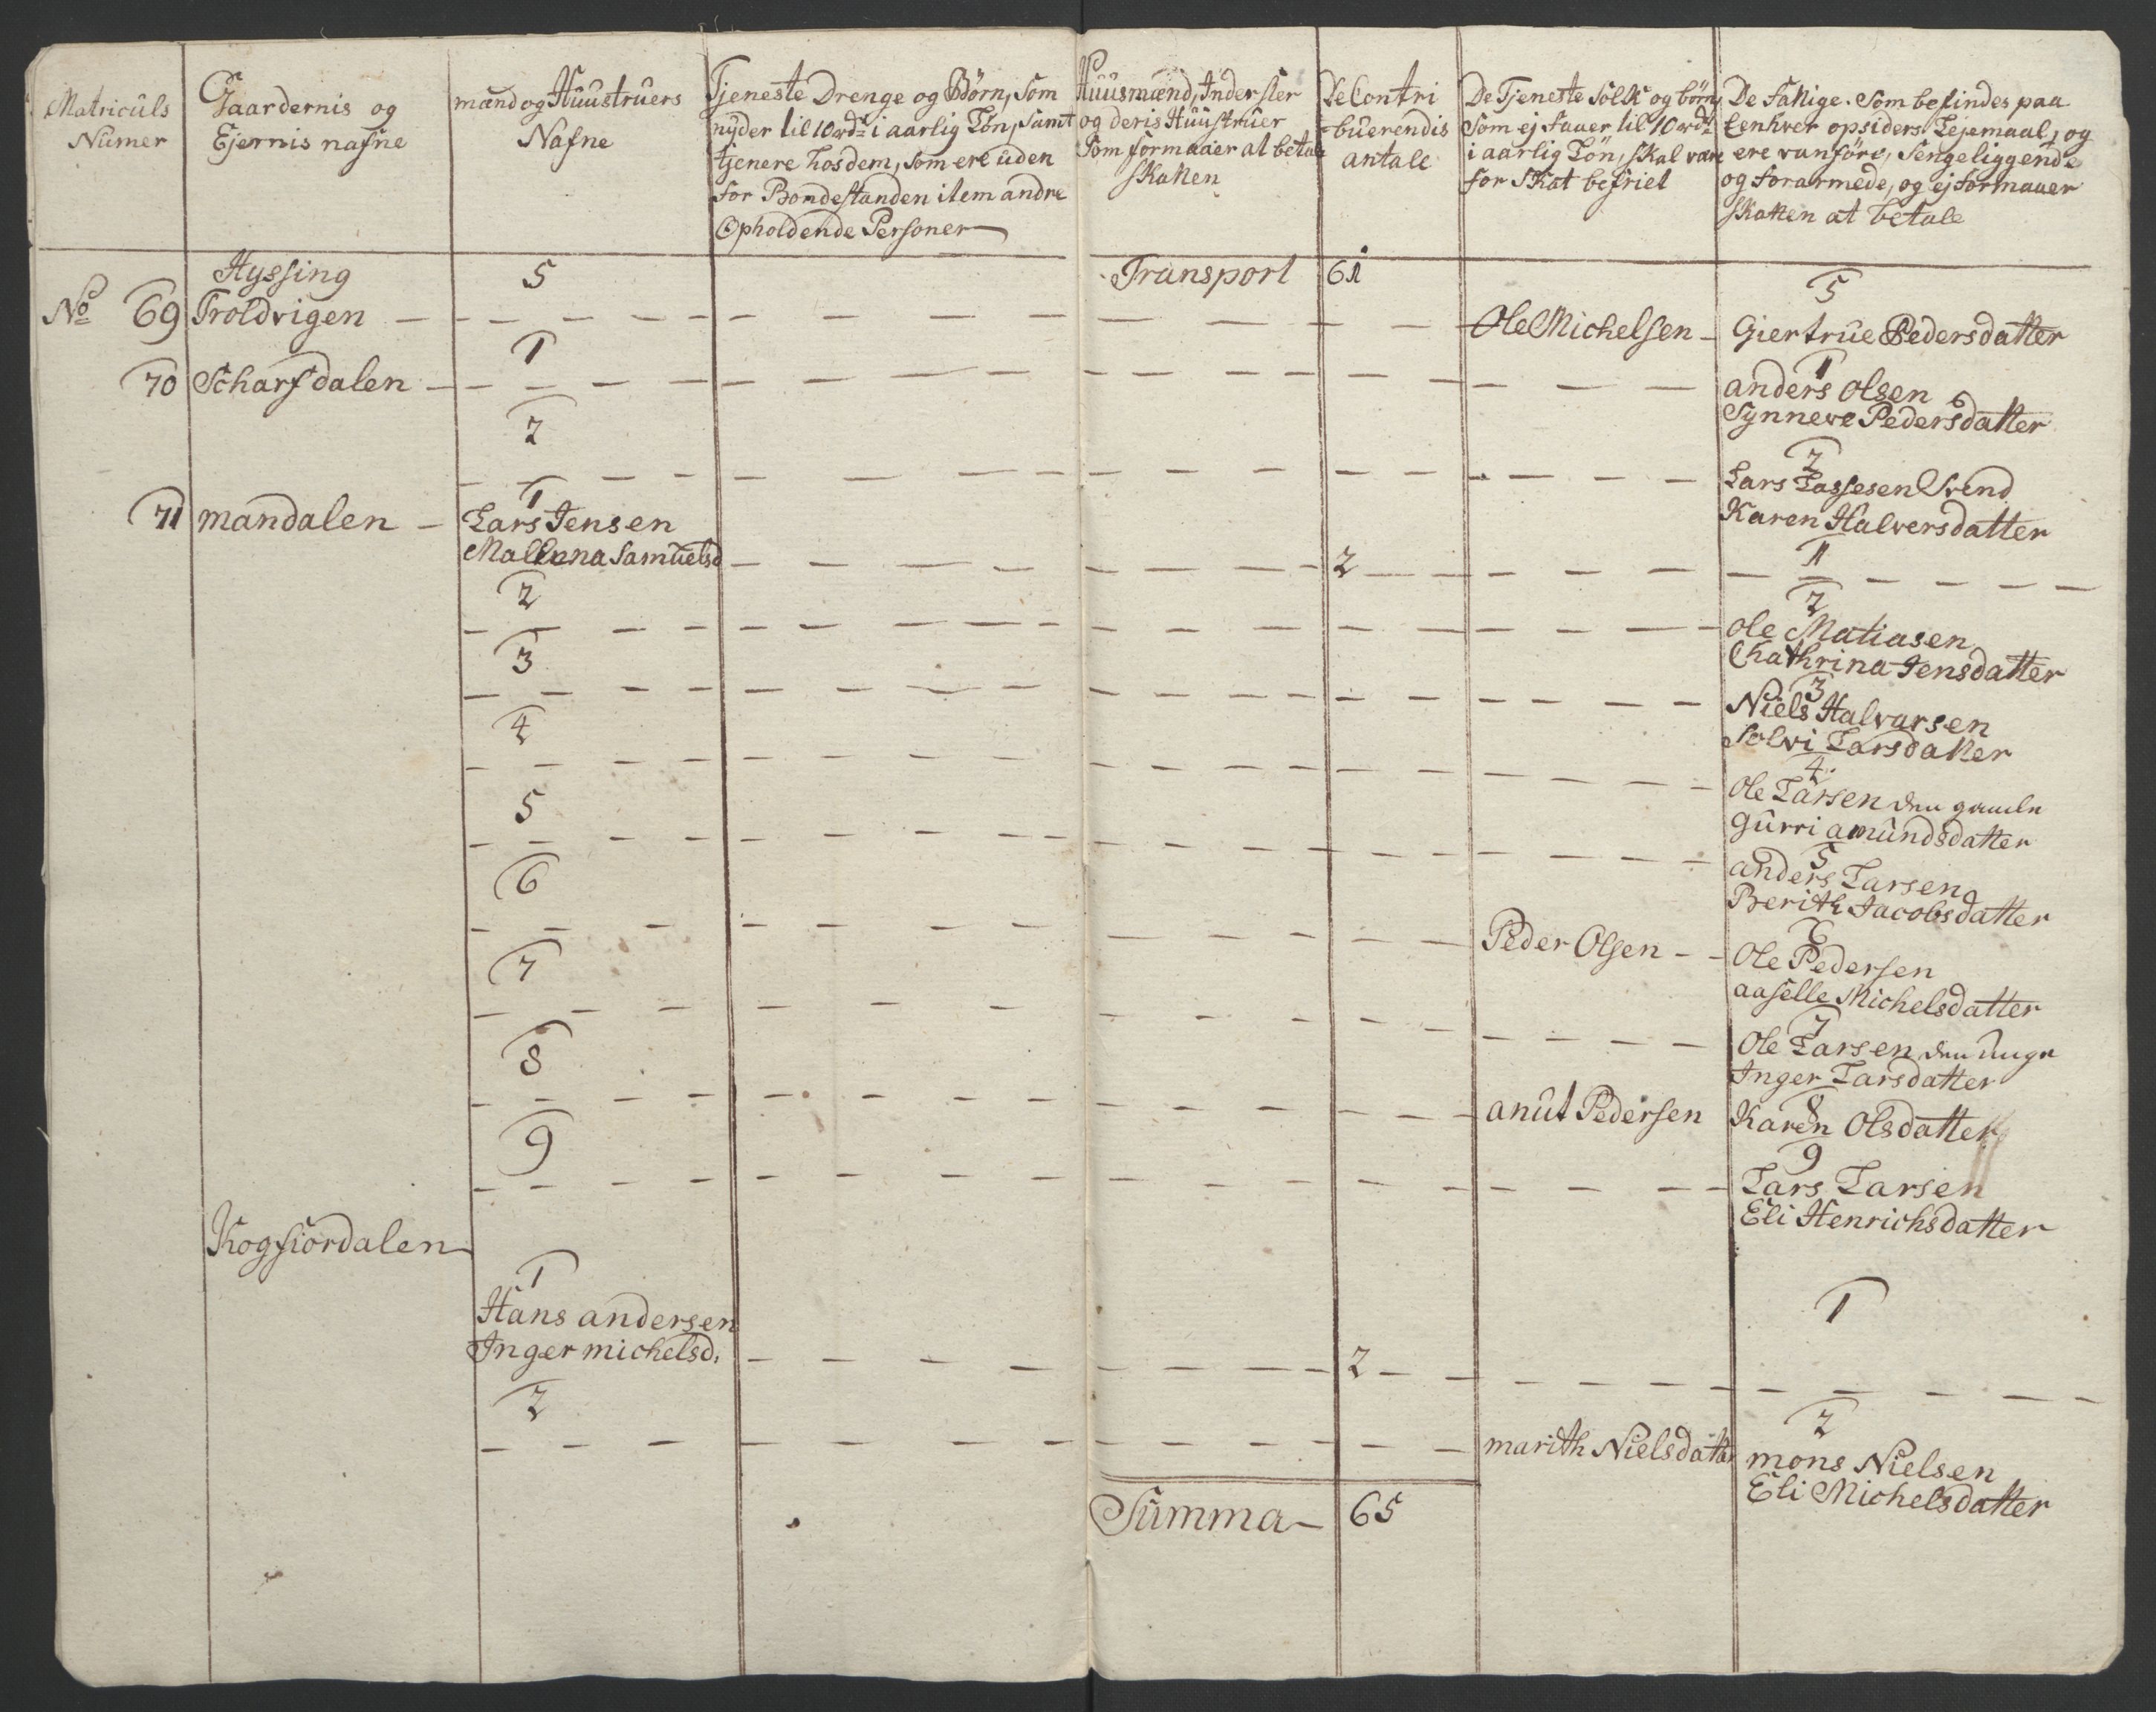 Matriculs
Numer
Gaardernis og
Ejernis nafne
mænd og Huustruers
Nafne
Tjeneste Drenge og Börn, som
nÿder til 10 rdr i aarlig Lön, samt
tjenere hos dem, som ere uden
for Bondestanden item andre
Opholdende Personer
Huusmænd, Inderster
og deris Huustruer
som formaaer at betale
skatten
De Contri
buerendis
antall
De Tjeneste folk og börn,
som ej faaer til 10 rdr
i aarlig Lön, skal være
for skat befriet
De Fattige. Som befindes paa
eenhver opsiders Lejemaal, og
ere vanföre, sengeliggende
og forarmede, og ej formaaer
skatten at betale
Hyssing 5 Transport 61 5
No 69 Troldvigen — Ole Michelsen — Giertrue Pedersdatter
1 1
70 Scharfdalen — anders Olsen
Synneve Pedersdatter
2 2
Lars Lassesen Svend
Karen Halversdatter
1 1
71 mandalen — Lars Jensen
Malena Samuelsd 2
2 2
Ole Matiasen
Chathrina Jensdatter
3 3
Niels Halvarsen
Solvi Larsdatter
4 4
Ole Larsen den gamle
Gurri amundsdatter
5 5
anders Larsen
Berith Jacobsdatter
6 6
Peder Olsen — Ole Pedersen
aaselle Michelsdatter
7 7
Ole Larsen den unge
Inger Larsdatter
8 8
anut Pedersen Karen Olsdatter
9 9
Lars Larsen
Eli Henrichsdatter
Kogfiordalen
1 1
Hans andersen
Inger michelsd. 2
2 2
marith Nielsdatter mons Nielsen
Eli Michelsdatter
Summa — 65